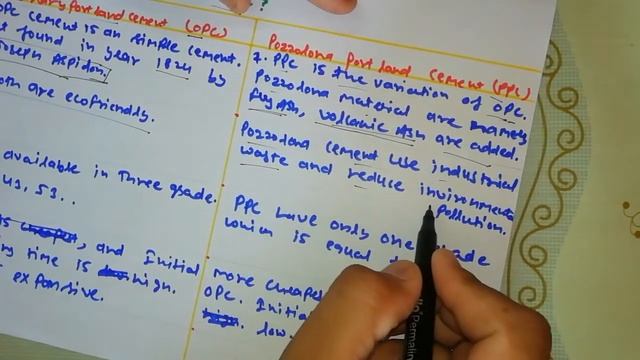 ?
Portland cement (OPC)
OPC cement is an simple cement.
found in year 1824 by
Joseph Aspidon.
both are ecofriendly.
available in Three grade.
43, 53..
and Initial
time is high.
expansive.
Pozzolona Portland Cement (PPC)
1. PPC is the variation of OPC.
Pozzolona material are namely
fly Ash, volcanic Ash are added.
Pozzolona cement use industrial
waste and reduce invironment
Pollution.
PPC have only one grade
which is equal
more cheaper
OPC. Initial
low.